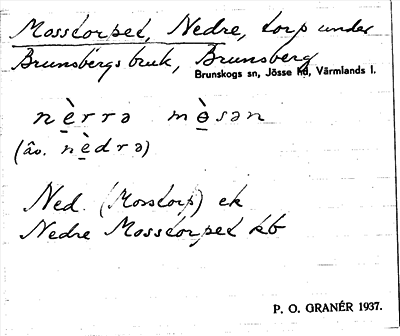 Mosstorpet, Nedre, torp under
Brunsbergs bruk, Brunsberg
Brunskogs sn, Jösse hd, Värmlands l.
nè̱rrə mò̱sən
(äv. nè̱drə)
Ned. (Mosstorp) ek
Nedre Mosstorpet kb
P. O. GRANÉR 1937.